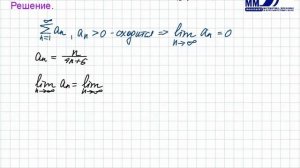 Решение.
ММ
∞
∑ aₙ, aₙ > 0 - сходится ⇒ lim aₙ = 0
n=1 n→∞
aₙ = n/(4n+6)
lim aₙ = lim
n→∞ n→∞